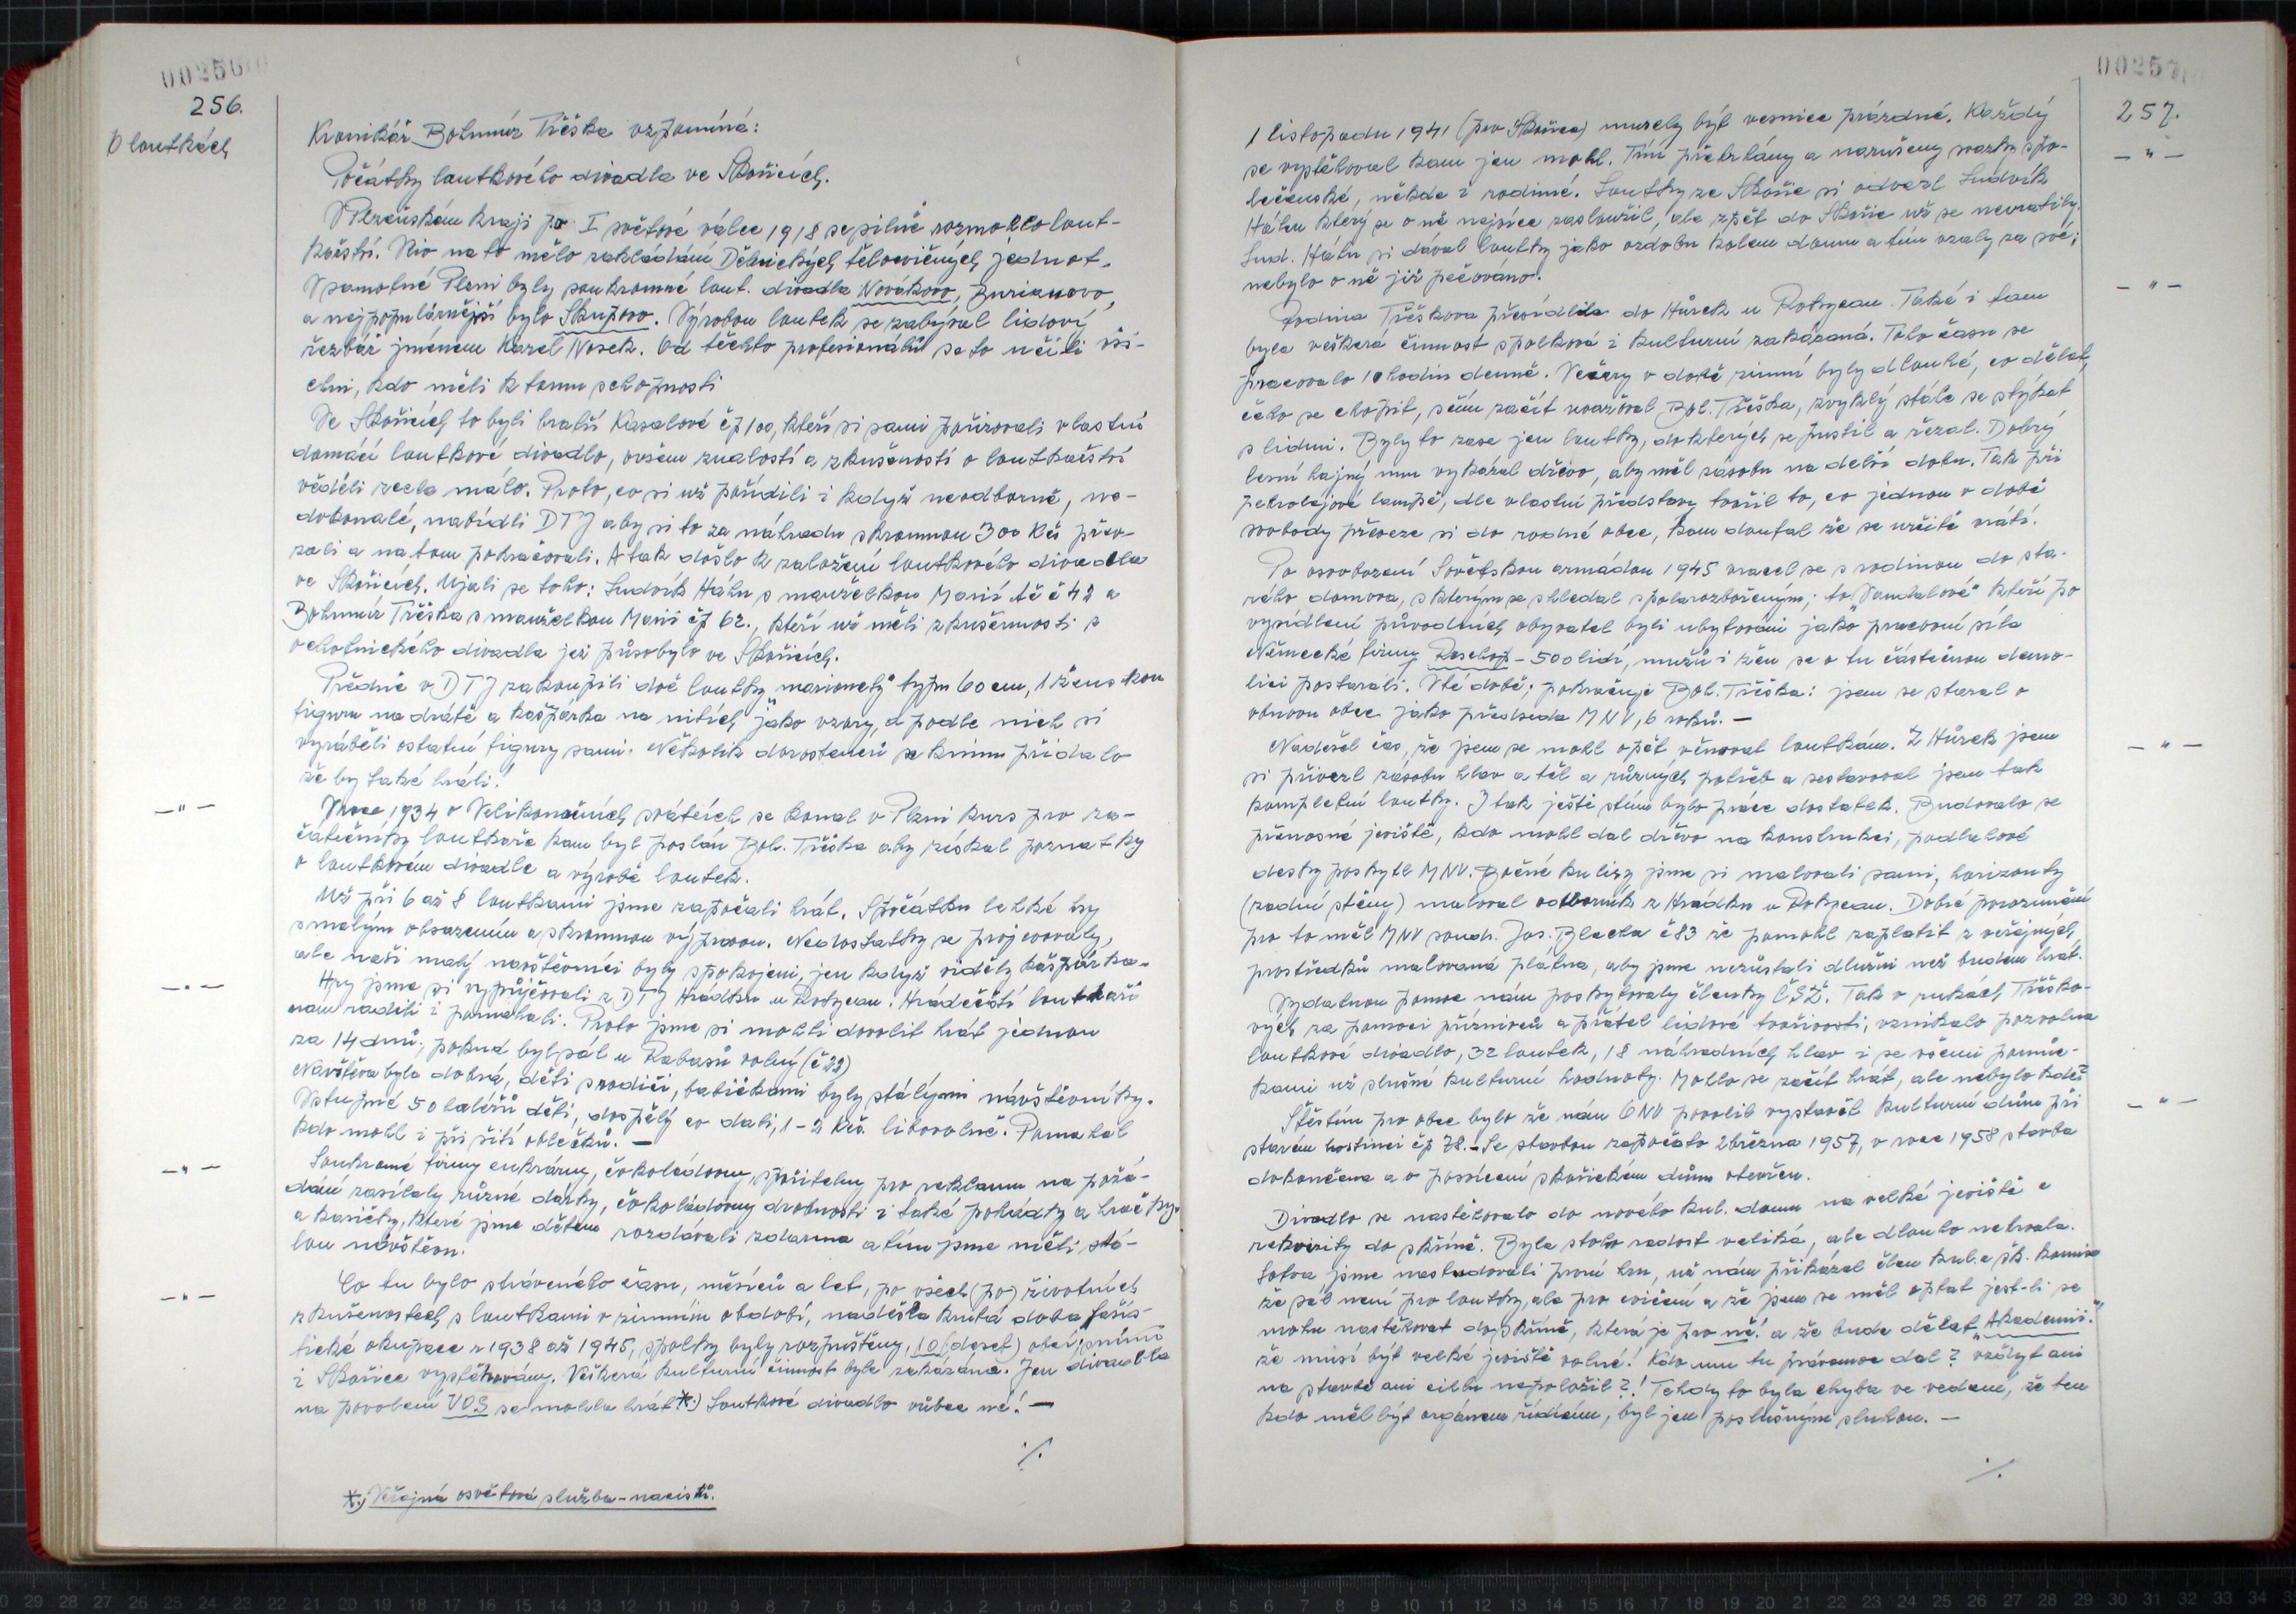 00256
256.
O loutkách
Kronikář Bohumír Tříška vzpomíná:
Počátky loutkového divadla ve Skořicích.
V Plzeňském kraji po I světové válce 1918 se pilně rozmohlo lout-
kářství. Vliv na to mělo zakládání Dělnických tělocvičných jednot.
V samotné Plzni byly soukromné lout. divadla Novákovo, Zurianovo,
a nejpopulárnější bylo Skupovo. Výrobou loutek se zabýval lidový
řezbář jménem Karel Nosek. Od těchto profesionálů se to učili vši-
chni, kdo měli k tomu schopnosti
Ve Skořicích to byli bratři Kasalové čp 100, kteří si sami pořizovali vlastní
domácí loutkové divadlo, ovšem znalostí a zkušeností o loutkářství
věděli zcela málo. Proto, co si už pořídili i když neodborně, ne-
dokonalé, nabídli DTJ aby si to za náhradu skromnou 300 Kčs převz-
zali a na tom pokračovali. A tak došlo k založení loutkového divadla
ve Skořicích. Ujali se toho: Ludvík Háhn s manželkou Marií čč 42 a
Bohumír Tříška s manželkou Marií čp 62., kteří už měli zkušennosti z
ochotnického divadla jež působylo ve Skořicích.
Předně v DTJ zakoupili dvě loutky „marionety" typu 60 cm, 1 ženskou
figuru na drátě a kašpárka na nitích jako vzory, a podle nich si
vyráběli ostatní figury sami. Několik dorostenců se k nim přidalo
že by také hráli!
— " —
V roce 1934 o Velikonočních svátcích se konal v Plzni kurs pro za-
čátečníky loutkáře kam byl poslán Boh. Tříška aby získal poznatky
o loutkovém divadle a výrobě loutek.
Už při 6 až 8 loutkami jsme započali hrát. Spočátku lehké hry
s malým obsazením a skromnou výpravou. Nedostatky se projevovaly,
ale naši malý navštěvníci byly spokojeni, jen když viděly kašpárka.
— " —
Hry jsme si vypůjčovali z DTJ Hrádku u Rokycan. Hrádečtí loutkaři
nám radili i pomáhali. Proto jsme si mohli dovolit hrát jednou
za 14 dnů, pokud byl sál u Rabasů volný (č 22)
Návštěva byla dobrá, děti s rodiči, babičkami byly stálými návštěvníky.
Vstupné 50 haléřů děti, dospělý co dali, 1-2 Kčs. libovolně. Pomahal
kdo mohl i při šití oblečků. —
— " —
Soukromé firmy cukrárny, čokoládovny, spořitelny pro reklamu na požá-
dání zasílaly různé dárky, čokoládovny drobnosti i také pohádky a hračky
a kasičky, které jsme dětem rozdávali zdarma a tím jsme měli stá-
lou návštěvu.
— " —
Co tu bylo stráveného času, měsíců a let, po všech (po) životních
zkušenostech s loutkami v zimním období, nadešla krutá doba fašis-
tické okupace r 1938 až 1945, spolky byly rozpuštěny, 10 (deset) obcí, mimo
i Skořice vystěhovány. Veškerá kulturní činnost byla zakázána. Jen divadla
na povolení VOS se mohla hrát *) Loutkové divadlo vůbec né! —
./.
*) Veřejná osvětová služba - nacistů.
00257
257.
1 listopadu 1941 (pro Skořice) musely být vesnice prázdné. Každý
— " —
se vystěhoval kam jen mohl. Tím přetrhány a narušeny svazky spo-
lečenské, někde i rodinné. Loutky ze Skořic si odvezl Ludvík
Háhn který se o ně nejvíce zasloužil, ale zpět do Skořic už se nevrátily.
Lud. Háhn si dával loutky jako ozdobu kolem domu a tím vzaly za své;
nebylo o ně již pečováno.
— " —
Rodina Tříškova přesídlila do Hůrek u Rokycan. Také i tam
byla veškerá činnost spolková i kulturní zakázaná. Toho času se
pracovalo 10 hodin denně. Večery v době zimní byly dlouhé, co dělat,
čeho se chopit, s čím začít uvažoval Boh. Tříška, zvyklý stále se stýkat
s lidmi. Byly to zase jen loutky, do kterých se pustil a řezal. Dobrý
lesní hajný mu vykázal dřevo, aby měl zásobu na delší dobu. Tak při
petrolejové lampě, dle vlastní představy tvořil to, co jednou v době
svobody převeze si do rodné obce, kam doufal že se určitě vrátí.
Po osvobození Sovětskou armádou 1945 vracel se s rodinou do sta-
rého domova, s kterým se shledal spolarozbořeným; to „Vandalové" kteří po
vysídlení původních obyvatel byli ubytováni jako pracovní síla
Německé firmy Raschop - 500 lidí, mužů i žen se o tu částečnou demo-
lici postarali. V té době; pokračuje Boh. Tříška: jsem se staral o
obnovu obce jako předseda MNV, 6 roků. —
— " —
Nadešel čas, že jsem se mohl opět věnovat loutkám. Z Hůrek jsem
si přivezl zásobu hlav a těl a různých potřeb a sestavoval jsem tak
kompletní loutky. I tak ještě s tím bylo práce dostatek. Budovalo se
přenosné jeviště, kdo mohl dal dřevo na konstrukci, podlahové
desky poskytl MNV. Bočné kulisy jsme si malovali sami, horizonty
(zadní stěny) maloval odborník z Hrádku u Rokycan. Dobré porozumění
pro to měl MNV soudr. Jos. Blecha č 83 že pomohl zaplatit z veřejných
prostředků malovaná plátna, aby jsme nezůstali dlužni než budem hrát.
Vydatnou pomoc nám poskytovaly členky ČSŽ. Tak v rukách Tříško-
vých za pomoci příznivců a přátel lidové tvořivosti, vznikalo pozvolna
loutkové divadlo, 32 loutek, 18 náhradních hlav i se všemi pomůc-
kami už slušné kulturní hodnoty. Mohlo se začít hrát, ale nebylo kde!
— " —
Štěstím pro obec bylo že nám ONV povolil vystavět kulturní dům při
starém hostinci čp 78. - Se stavbou započato 2 března 1957, v roce 1958 stavba
dokončena a o posvícení skořickém dům otevřen.
Divadlo se nastěhovalo do nového kul. domu na velké jeviště a
rekvizity do skříně. Byla z toho radost veliká, ale dlouho netrvala.
Sotva jsme nastudovali první hru, už nám přikázal člen kul. a šk. komise
že sál není pro loutky, ale pro cvičení a že jsem se měl optat jest-li se
mohu nastěhovat do skříně, která je pro ně! a že bude dělat „Akademii."
že musí být velké jeviště volné! Kdo mu tu právomoc dal? vždyť ani
na stavbě ani cihlu nepoložil?! Tehdy to byla chyba ve vedení, že ten
kdo měl být orgánem řídícím, byl jen poslušným sluhou. —
./.